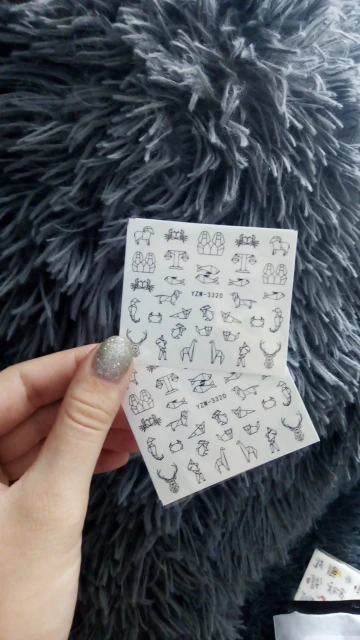 YZW-3320
YZW-3320